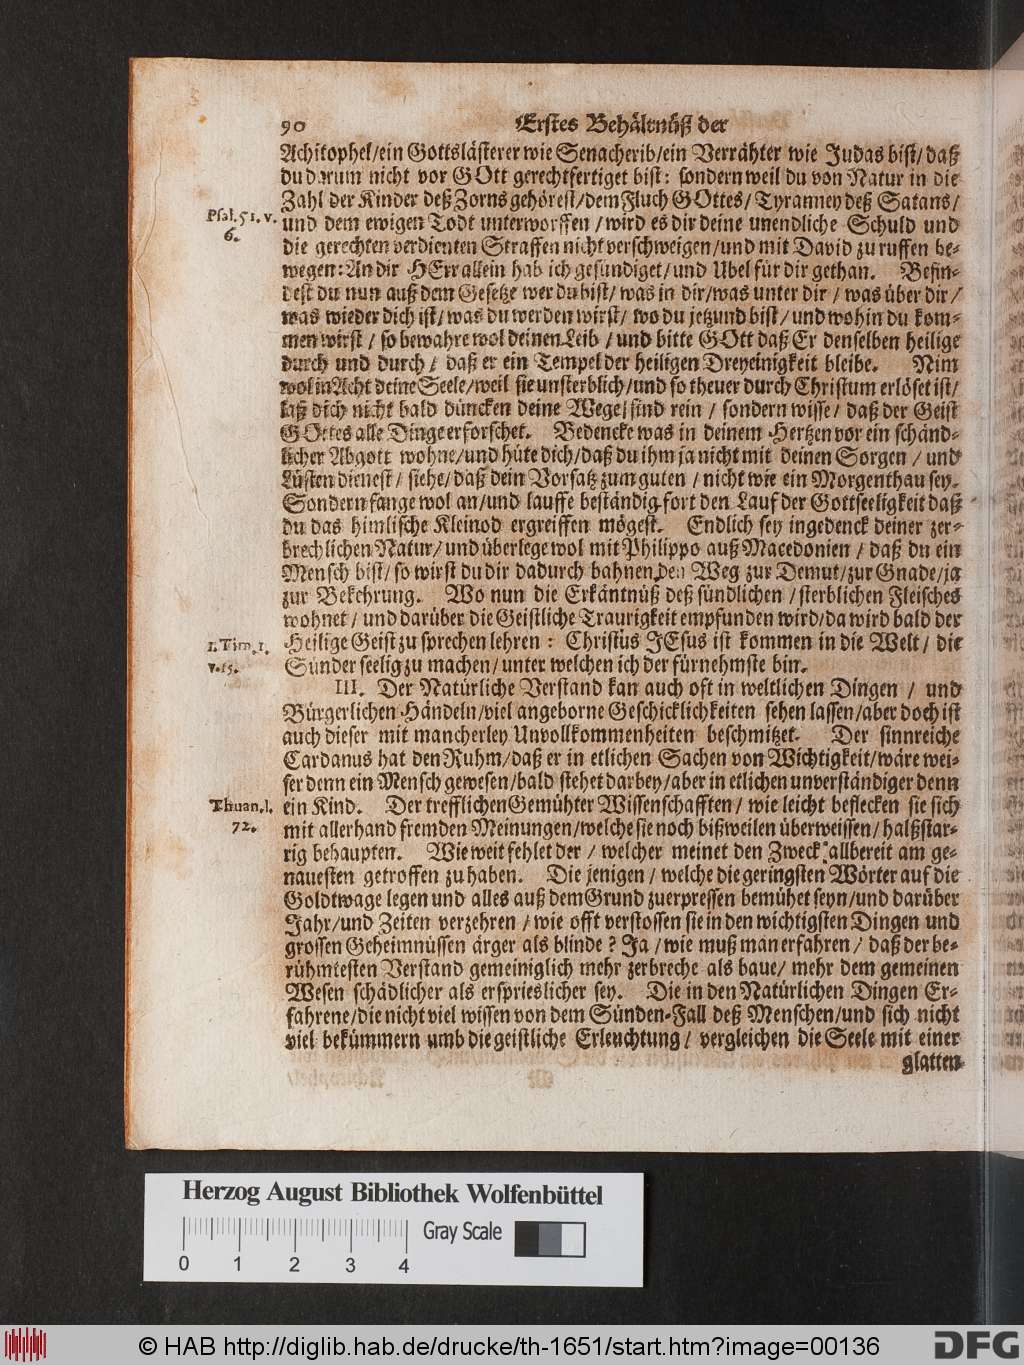 90 Erstes Behältnüß der
Achitophel/ein Gottslästerer wie Senacherib/ein Verrähter wie Judas bist/ daß
du darum nicht vor GOtt gerechtfertiget bist: sondern weil du von Natur in die
Zahl der Kinder deß Zorns gehörest/dem Fluch GOttes/ Tyranney deß Satans/
Psal. 51. v. 6.
und dem ewigen Todt unterworffen / wird es dir deine unendliche Schuld und
die gerechten verdienten Straffen nicht verschweigen/und mit David zu ruffen be-
wegen: An dir HErr allein hab ich gesündiget/und Ubel für dir gethan. Befin-
dest du nun auß dem Gesetze wer du bist/ was in dir/was unter dir / was über dir /
was wieder dich ist/ was du werden wirst/ wo du jetzund bist/ und wohin du kom-
men wirst / so bewahre wol deinen Leib / und bitte GOtt daß Er denselben heilige
durch und durch / daß er ein Tempel der heiligen Dreyeinigkeit bleibe. Nim
wol in Acht deine Seele/weil sie unsterblich/und so theuer durch Christum erlöset ist/
laß dich nicht bald düncken deine Wege sind rein / sondern wisse / daß der Geist
GOttes alle Dinge erforschet. Bedencke was in deinem Hertzen vor ein schänd-
licher Abgott wohne/und hüte dich/daß du ihm ja nicht mit deinen Sorgen / und
Lüsten dienest / siehe/ daß dein Vorsatz zum guten / nicht wie ein Morgenthau sey.
Sondern fange wol an/und lauffe beständig fort den Lauf der Gottseeligkeit daß
du das himlische Kleinod ergreiffen mögest. Endlich sey ingedenck deiner zer-
brechlichen Natur/ und überlege wol mit Philippo auß Macedonien / daß du ein
Mensch bist/ so wirst du dir dadurch bahnen den Weg zur Demut/zur Gnade/ja
zur Bekehrung. Wo nun die Erkäntnüß deß sündlichen / sterblichen Fleisches
wohnet / und darüber die Geistliche Traurigkeit empfunden wird/da wird bald der
1. Tim. 1. v. 15.
Heilige Geist zu sprechen lehren : Christus JEsus ist kommen in die Welt / die
Sünder seelig zu machen / unter welchen ich der fürnehmste bin.
III. Der Natürliche Verstand kan auch oft in weltlichen Dingen / und
Bürgerlichen Händeln/viel angeborne Geschicklichkeiten sehen lassen/aber doch ist
auch dieser mit mancherley Unvollkommenheiten beschmitzet. Der sinnreiche
Cardanus hat den Ruhm/daß er in etlichen Sachen von Wichtigkeit/wäre wei-
ser denn ein Mensch gewesen/bald stehet darbey/aber in etlichen unverständiger denn
Thuan. l. 72.
ein Kind. Der trefflichen Gemühter Wissenschafften / wie leicht beflecken sie sich
mit allerhand fremden Meinungen/welche sie noch bißweilen überweissen/ halßstar-
rig behaupten. Wie weit fehlet der / welcher meinet den Zweck allbereit am ge-
nauesten getroffen zu haben. Die jenigen / welche die geringsten Wörter auf die
Goldtwage legen und alles auß dem Grund zuerpressen bemühet seyn/und darüber
Jahr/und Zeiten verzehren / wie offt verstossen sie in den wichtigsten Dingen und
grossen Geheimnüssen ärger als blinde ? Ja / wie muß man erfahren / daß der be-
rühmtesten Verstand gemeiniglich mehr zerbreche als baue/ mehr dem gemeinen
Wesen schädlicher als ersprieslicher sey. Die in den Natürlichen Dingen Er-
fahrene/die nicht viel wissen von dem Sünden-Fall deß Menschen/und sich nicht
viel bekümmern umb die geistliche Erleuchtung / vergleichen die Seele mit einer
glatten
Herzog August Bibliothek Wolfenbüttel
Gray Scale
0 1 2 3 4
© HAB http://diglib.hab.de/drucke/th-1651/start.htm?image=00136
DFG